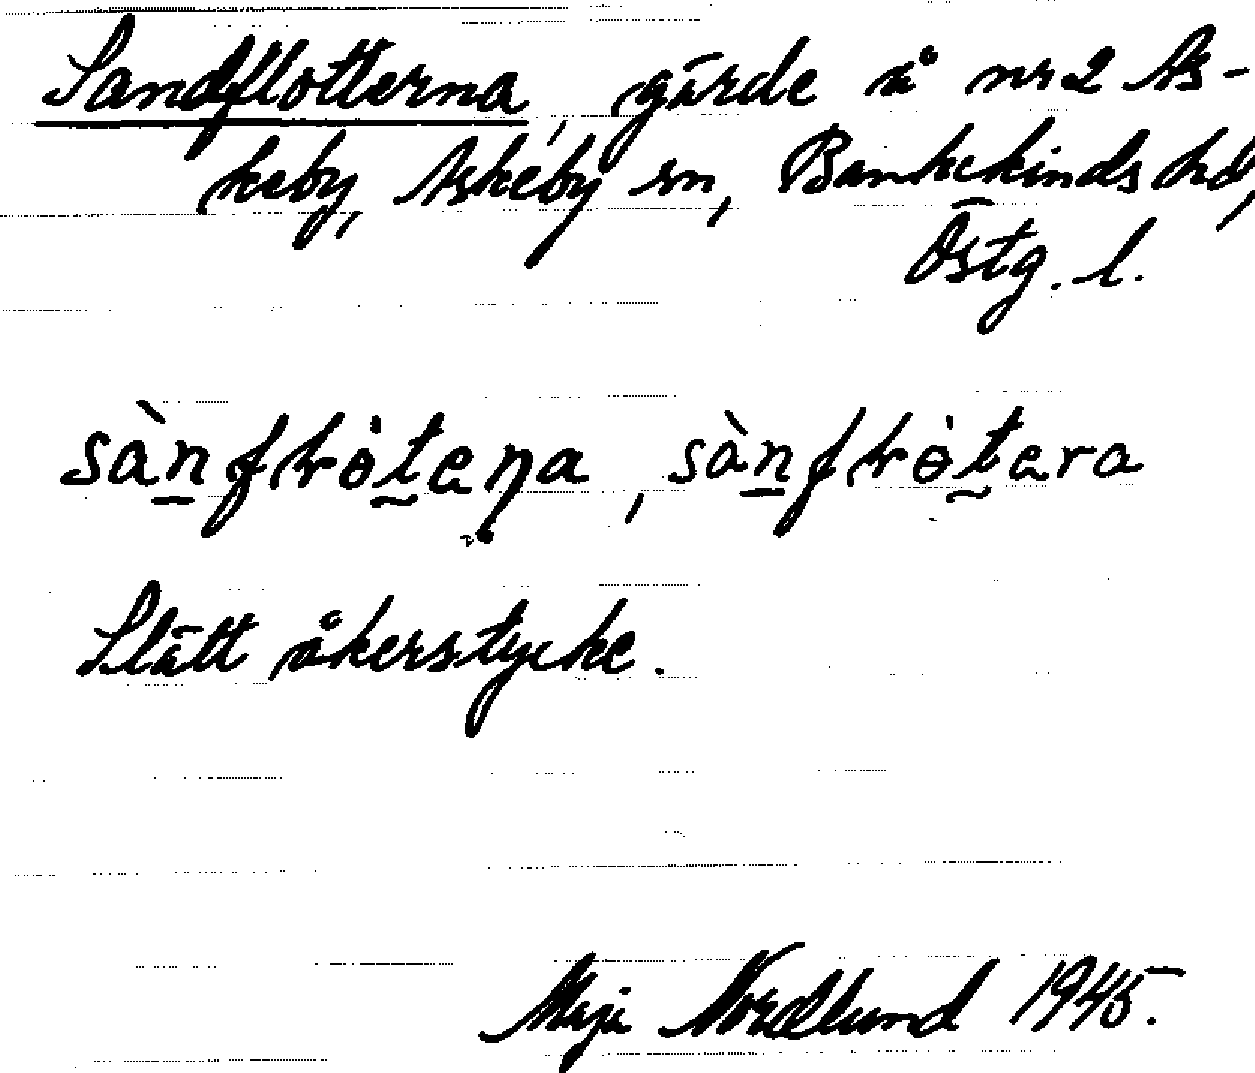 Sandflotterna, gärde å nr 2 As-
keby, Askeby sn, Bankekinds hd,
Östg. l.
sànflòtena, sànflòtera
Slätt åkerstycke.
Maja Nordlund 1945.